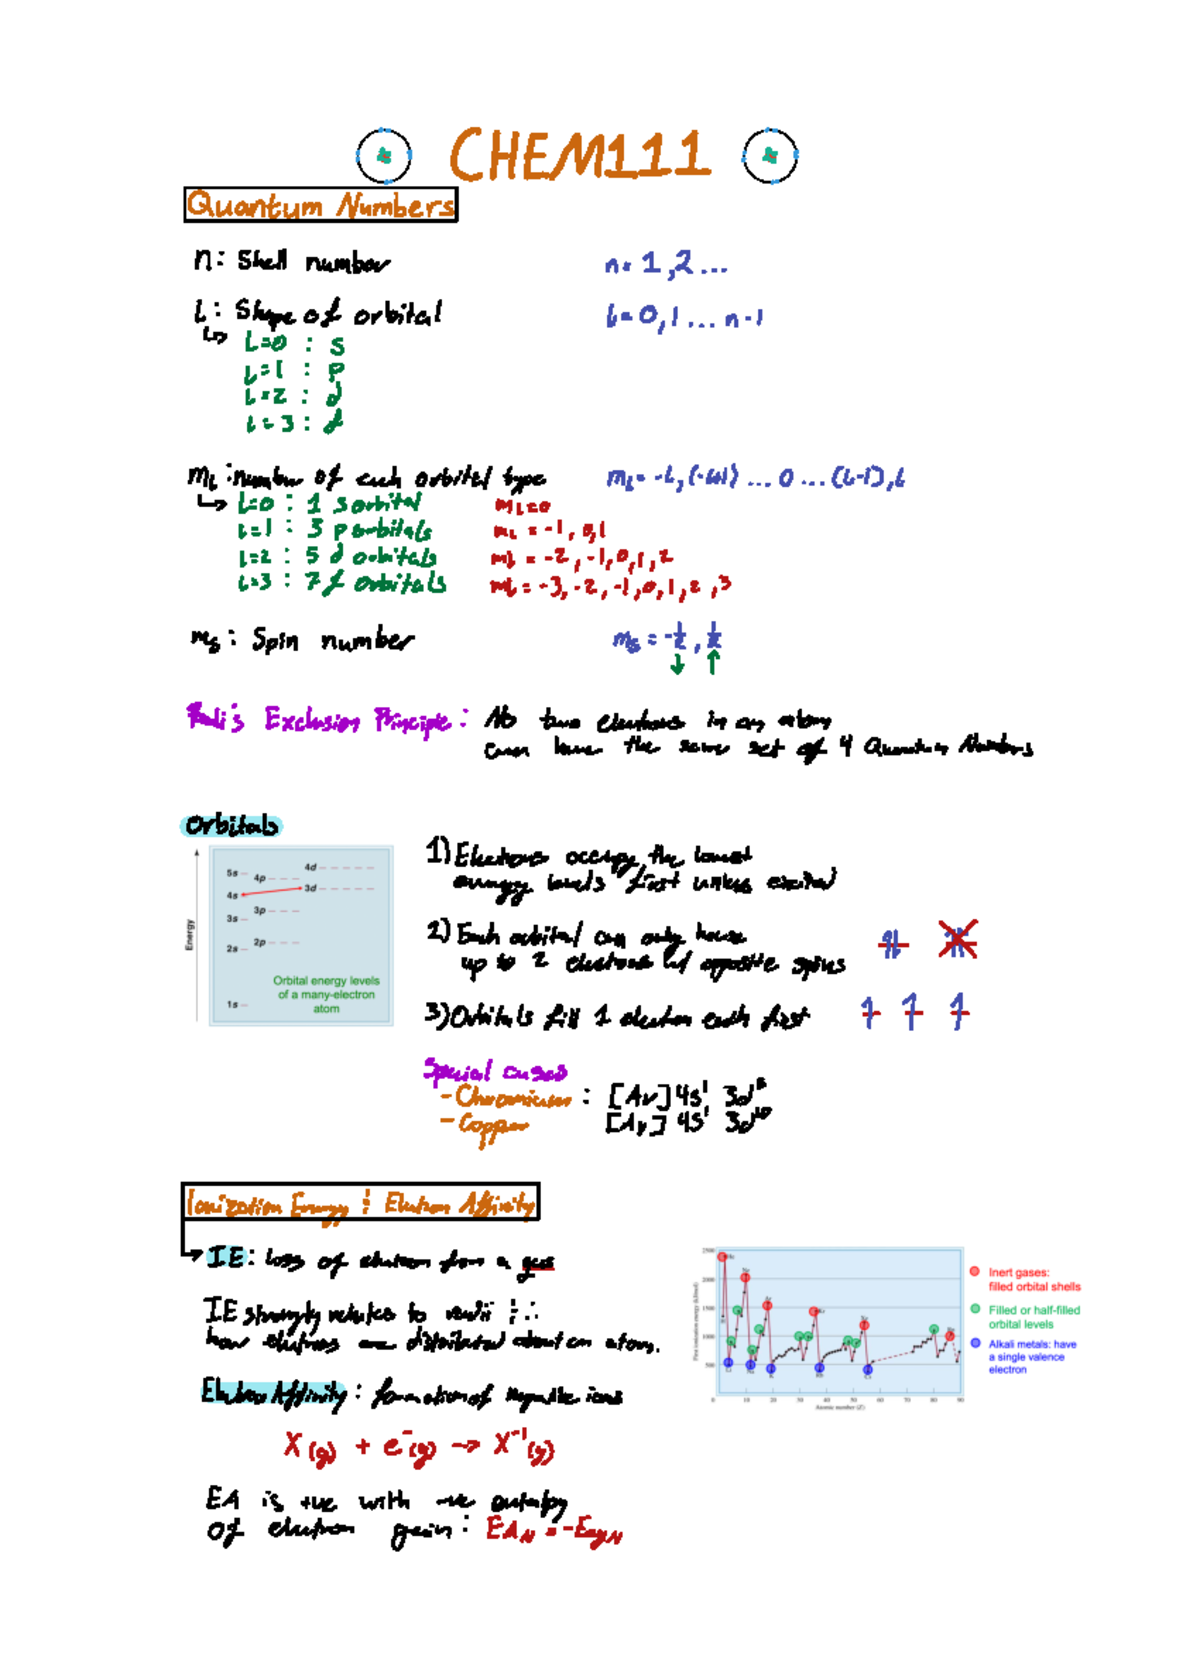 CHEM111
Quantum Numbers
n: Shell number n= 1,2...
L: Shape of orbital L=0,1...n-1
↳ L=0 : s
L=1 : p
L=2 : d
L=3 : f
mL: number of each orbital type mL= -L, (-L+1) ...0...(L-1),L
↳ L=0 : 1 s orbital mL=0
L=1 : 3 p orbitals mL = -1, 0,1
L=2 : 5 d orbitals mL = -2, -1,0,1,2
L=3 : 7 f orbitals mL = -3, -2, -1,0,1,2,3
ms: Spin number ms = -1/2, 1/2
↓ ↑
Pauli's Exclusion Principle: No two electrons in an atom
can have the same set of 4 Quantum Numbers
Orbitals
Energy
5s 4p 4d
4s 3d
3s 3p
2s 2p
1s
Orbital energy levels
of a many-electron
atom
1) Electrons occupy the lowest
energy levels first unless excited
2) Each orbital can only house
up to 2 electrons w/ opposite spins
3) Orbitals fill 1 electron each first
Special cases
- Chromium : [Ar] 4s1 3d5
- Copper [Ar] 4s1 3d10
Ionization Energy & Electron Affinity
IE: loss of electron from a gas
IE strongly relates to radii & ∴
how electrons are distributed about an atom.
Electron Affinity: formation of negative ions
X(g) + e-(g) → X-1(g)
EA is +ve with -ve entalpy
of electron gain: EAN = -EegN
First ionization energy (kJ/mol)
2500
2000
1500
1000
500
0 10 20 30 40 50 60 70 80 90
Atomic number (Z)
Inert gases:
filled orbital shells
Filled or half-filled
orbital levels
Alkali metals: have
a single valence
electron